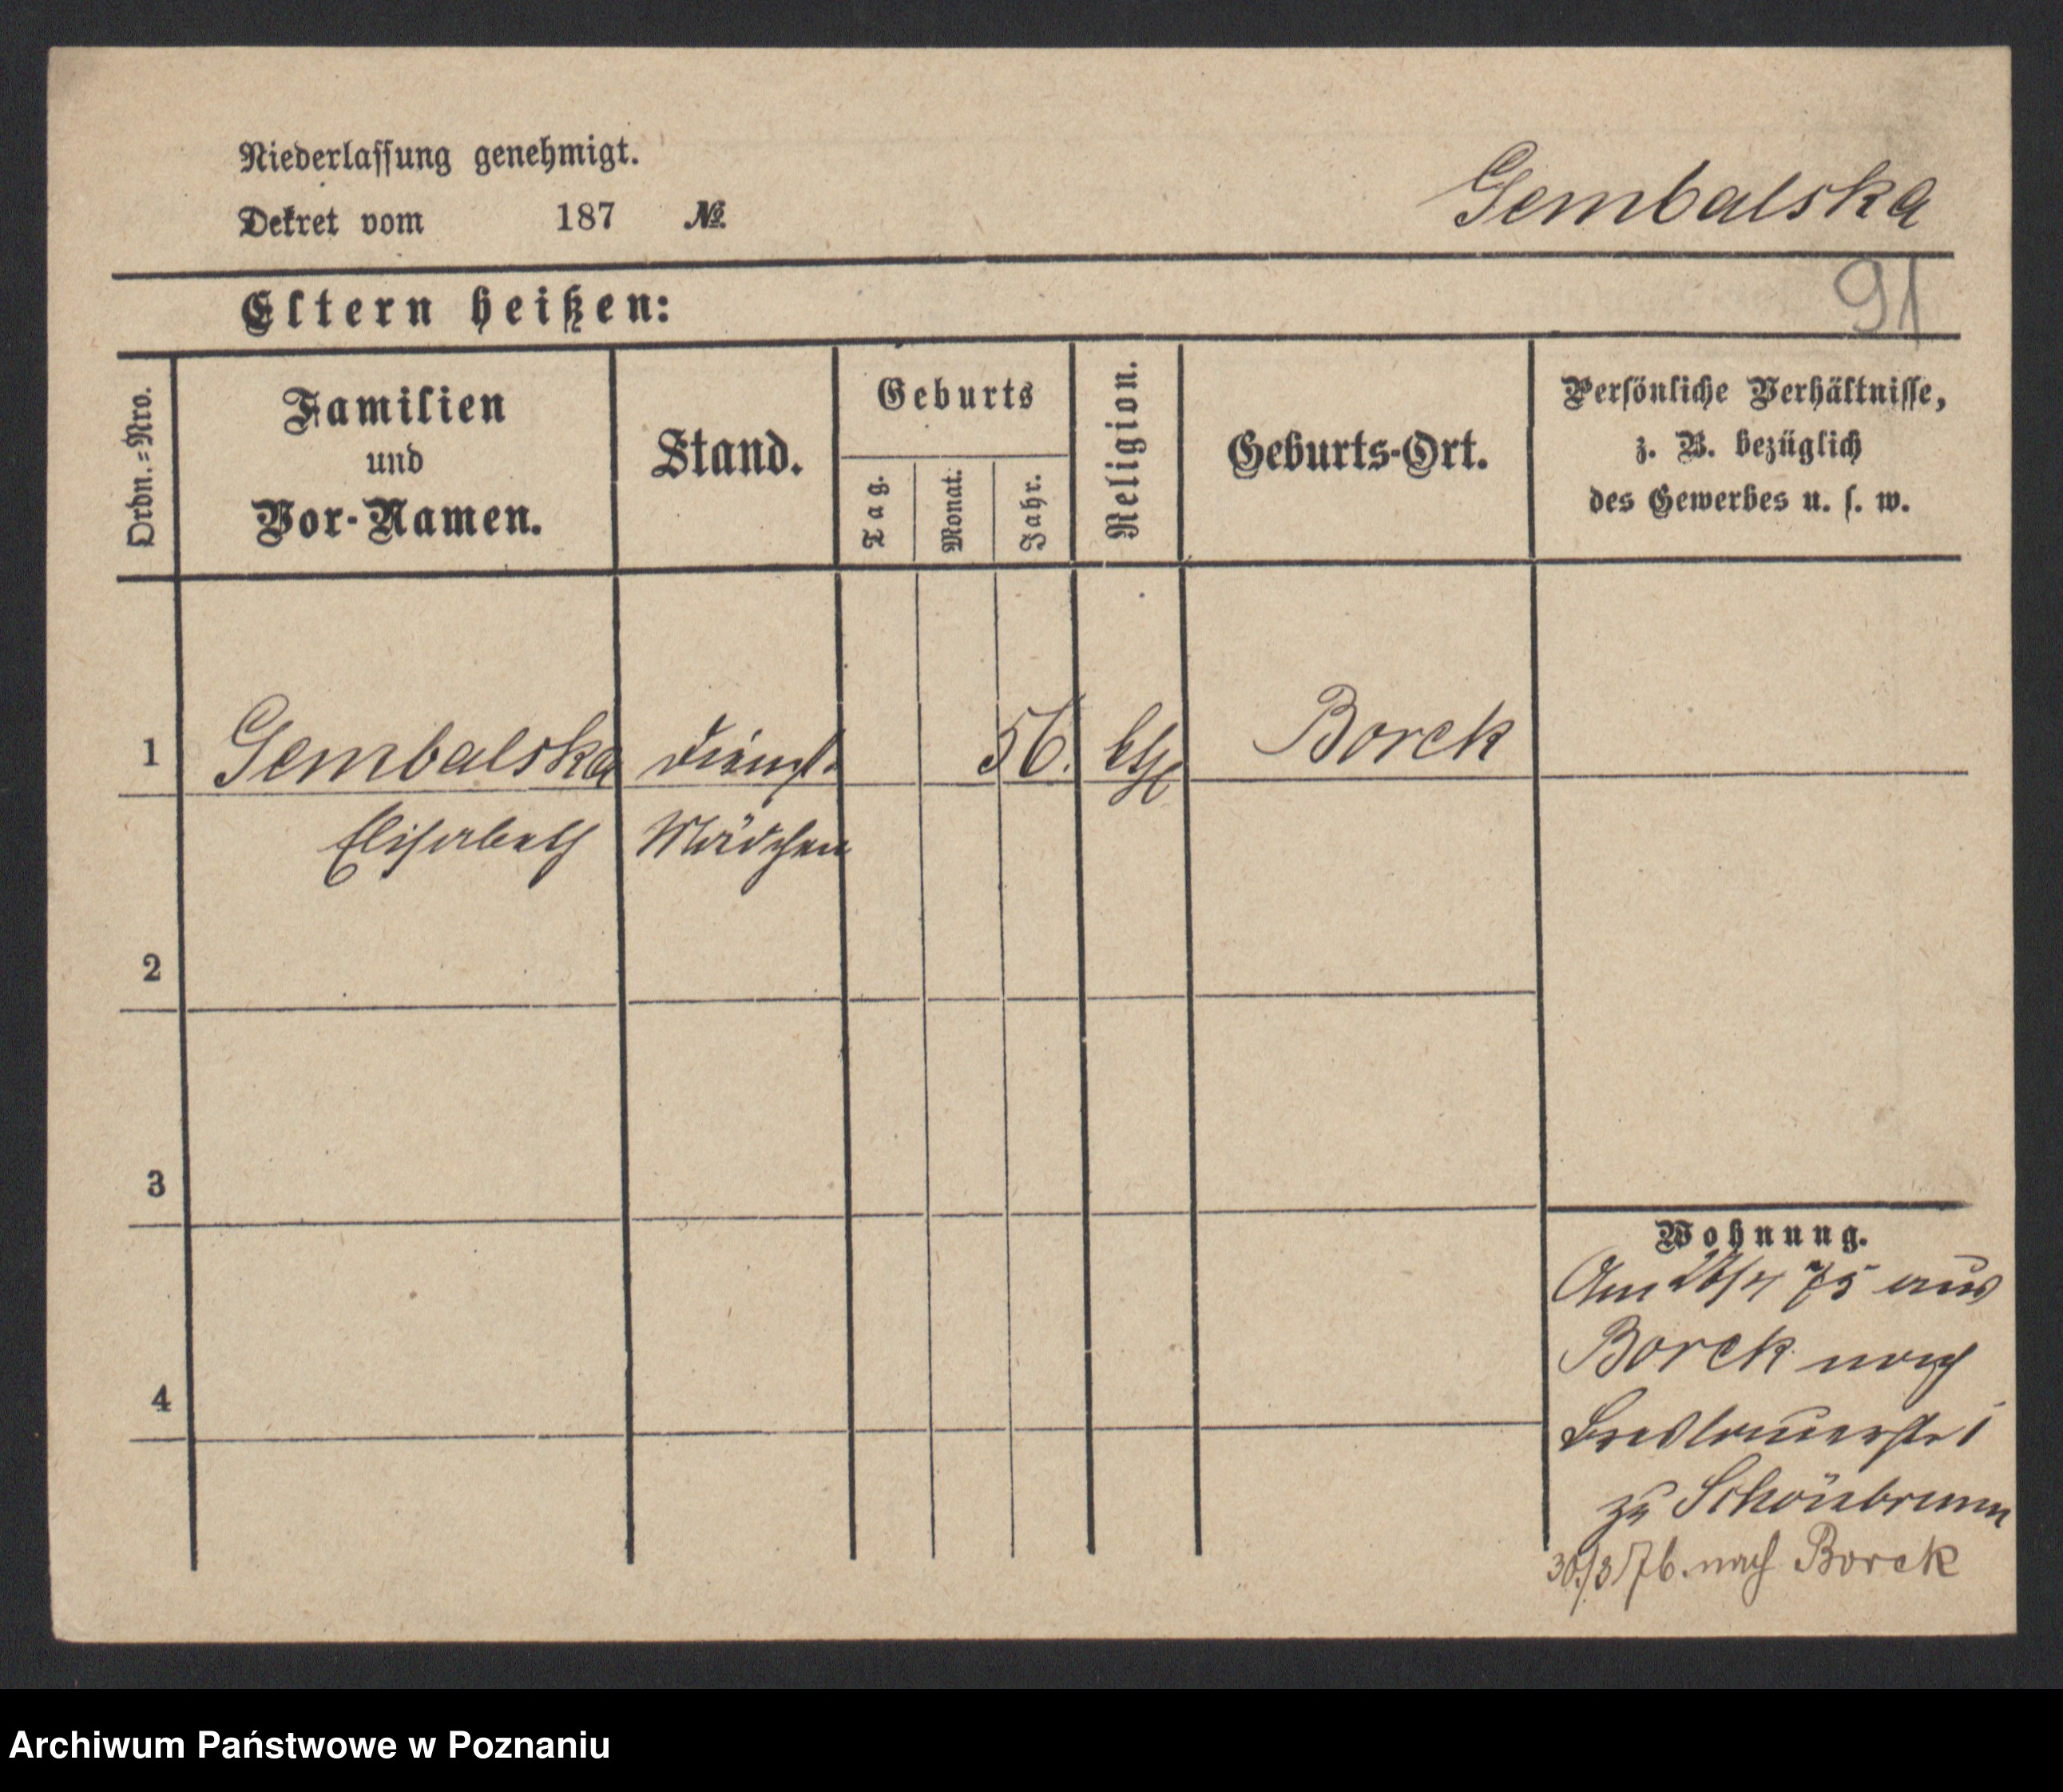 Niederlassung genehmigt.
Dekret vom 187 №
Gembalska
91
Eltern heißen:
Ordn.=Nro.
Familien
und
Vor-Namen.
Stand.
Geburts
Tag.
Monat.
Jahr.
Religion.
Geburts-Ort.
Persönliche Verhältnisse,
z. B. bezüglich
des Gewerbes u. s. w.
1 Gembalska Dienst- 56. Borek
Elisabeth Mädchen
2
3
4
Wohnung.
Am 26/4 75 aus
Borek nach
Breslauerstr 1
zu Schönbrunn
30/3 76. nach Borek
Archiwum Państwowe w Poznaniu